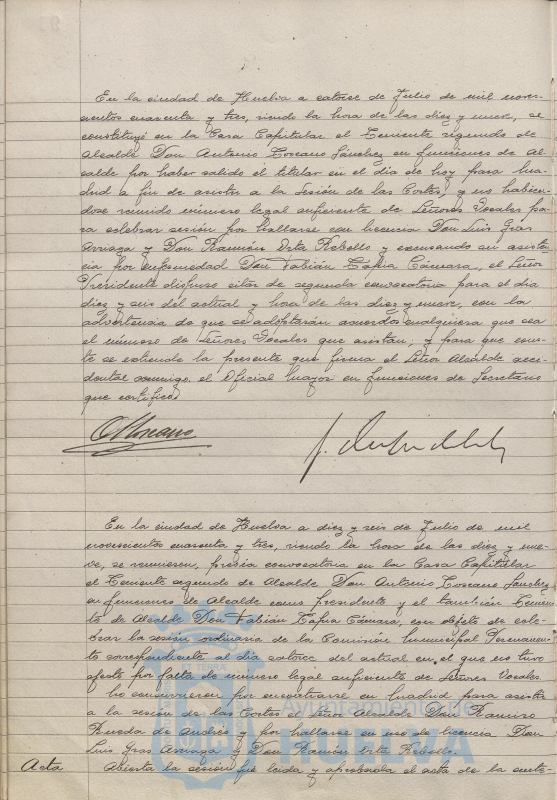 En la ciudad de Huelva a catorce de Julio de mil nove-
cientos cuarenta y tres, siendo la hora de las diez y nueve, se
constituyó en la Casa Capitular el Teniente segundo de
Alcalde Don Antonio Toscano Sánchez en funciones de Al-
calde por haber salido el titular en el dia de hoy para Ma-
drid a fin de asistir a la sesión de las Cortes, y no habién-
dose reunido número legal suficiente de Señores Vocales pa-
ra celebrar sesión por hallarse con licencia Don Luis Gras
Arriaga y Don Ramón Orta Rebollo y excusando su asisten-
cia por enfermedad Don Fabián Tapia Cámara, el Señor
Presidente dispuso citar de segunda convocatoria para el dia
diez y seis del actual y hora de las diez y nueve, con la
advertencia de que se adoptarán acuerdos cualquiera que sea
el número de Señores Vocales que asistan, y para que cons-
te se extiende la presente que firma el Señor Alcalde acci-
dental conmigo el Oficial Mayor en funciones de Secretario
que certifico.
A Toscano
En la ciudad de Huelva a diez y seis de Julio de mil
novecientos cuarenta y tres, siendo la hora de las diez y nue-
ve, se reunieron, previa convocatoria en la Casa Capitular
el Teniente segundo de Alcalde Don Antonio Toscano Sánchez
en funciones de Alcalde como presidente y el también Tenien-
te de Alcalde Don Fabián Tapia Cámara, con objeto de cele-
brar la sesión ordinaria de la Comisión Municipal Permanen-
te correspondiente al dia catorce del actual en el que no tuvo
efecto por falta de número legal suficiente de Señores Vocales.
No concurrieron por encontrarse en Madrid para asistir
a la sesión de las Cortes el Señor Alcalde Don Ramiro
Rueda de Andrés y por hallarse en uso de licencia Don
Luis Gras Arriaga y Don Ramón Orta Rebollo.
Acta Abierta la sesión fué leida y aprobada el acta de la ante-
Ayuntamiento de
HUELVA